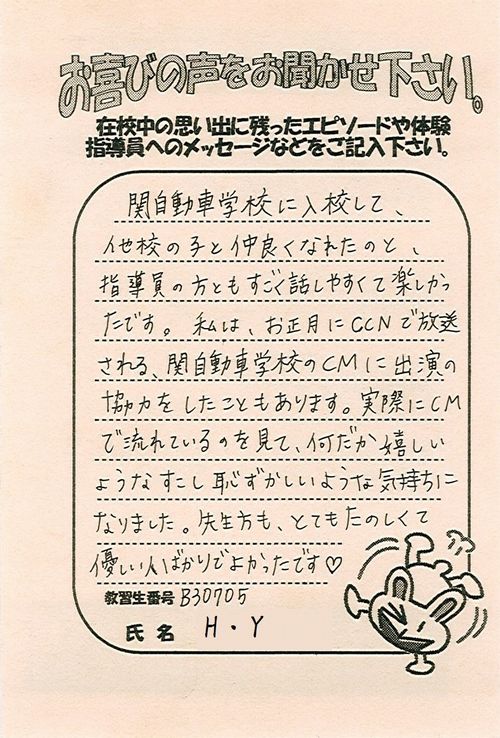 お喜びの声をお聞かせ下さい。
在校中の思い出に残ったエピソードや体験
指導員へのメッセージなどをご記入下さい。
関自動車学校に入校して、
他校の子と仲良くなれたのと、
指導員の方ともすごく話しやすくて楽しかっ
たです。私は、お正月にCCNで放送
される、関自動車学校のCMに出演の
協力をしたこともあります。実際にCM
で流れているのを見て、何だか嬉しい
ようなすこし恥ずかしいような気持ちに
なりました。先生方も、とてもたのしくて
優しい人ばかりでよかったです♡
教習生番号 B30705
氏名 H・Y